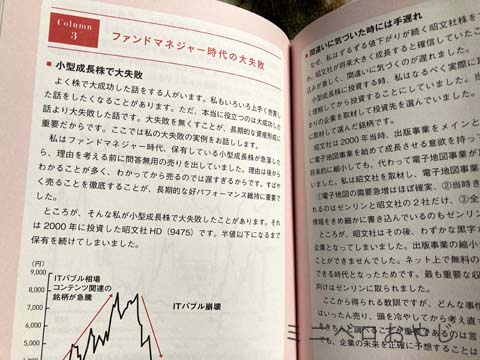 Column
3
ファンドマネジャー時代の大失敗
■ 小型成長株で大失敗
よく株で大成功した話をする人がいます。私もいろいろ上手く売買し
た話をしたくなることがあります。ただ、本当に役立つのは大成功した
話より大失敗した話です。大失敗を無くすことが、長期的な資産形成に
重要だからです。ここでは私の大失敗の実例をお話しします。
私はファンドマネジャー時代、保有している小型成長株が急落した
ら、理由を考える前に問答無用の売りを出していました。理由は後から
わかることが多く、わかってから売るのでは遅すぎるからです。すばや
く売ることを徹底することが、長期的な好パフォーマンス維持に重要で
した。
ところが、そんな私が小型成長株で大失敗したことがあります。それ
は2000年に投資した昭文社HD(9475)です。半値以下になるまで
保有を続けてしまいました。
(円)
9,000
8,000
7,000
6,000
5,000
4,000
ITバブル相場
コンテンツ関連の
銘柄が急騰
ITバブル崩壊
■ 間違いに気づいた時には手遅れ
なぜ、私はずるずる値下がりが続く昭文社株を
か。昭文社が将来大きく成長すると確信していた
込みが激しく、間違いに気づくのが遅れました。
小型成長株に投資する時、私はなるべく実際に取
く理解してから投資することにしていました。
まりの企業を取材して投資先を選んでいました。
に取材して選んだ銘柄です。
昭文社は2000年当時、出版事業をメインと
て電子地図事業を始めて成長させる意欲を持って
将来的に縮小しても、代わって電子地図事業が
いました。私は昭文社を取材し、
①電子地図の需要急増はほぼ確実、②当時き
れるのはゼンリンと昭文社の2社だけ、③全
情報をきめ細かに書き込んでいるのもゼンリン
ところが、昭文社はその後、わずかな黒字
企業となってしまいました。出版事業の縮小
ことができませんでした。ネット上で無料の
できる時代となったためです。最も重要な収
向けはゼンリンに取られました。
ここから得られる教訓ですが、どんな事情
はいったん売り、頭を冷やしてから考え直す
も、企業の未来を正確に予想することは